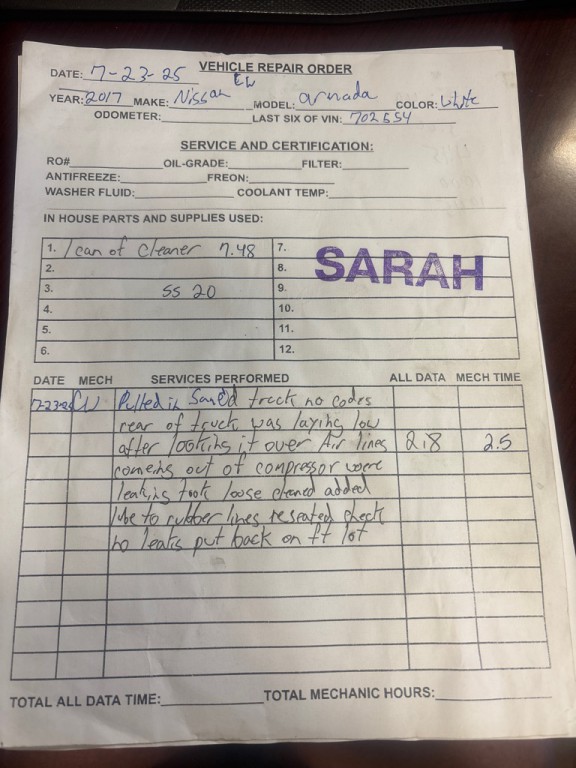 VEHICLE REPAIR ORDER
DATE: 7-23-25
YEAR: 2017 MAKE: Nissan MODEL: armada COLOR: white
ODOMETER: LAST SIX OF VIN: 702554
SERVICE AND CERTIFICATION:
RO# OIL-GRADE: FILTER:
ANTIFREEZE: FREON:
WASHER FLUID: COOLANT TEMP:
IN HOUSE PARTS AND SUPPLIES USED:
1. 1 can of cleaner 7.48 7.
2. 8. SARAH
3. SS 20 9.
4. 10.
5. 11.
6. 12.
DATE MECH SERVICES PERFORMED ALL DATA MECH TIME
7-23-25 Pulled in truck no codes
rear of truck was laying low
after looking it over Air lines 2.8 2.5
comeing out of compressor were
leaking took loose cleaned added
lube to rubber lines reseated check
no leaks put back on ft lot
TOTAL ALL DATA TIME: TOTAL MECHANIC HOURS: